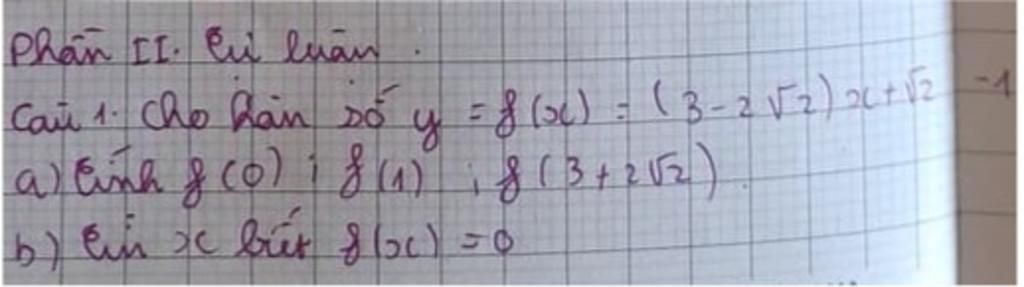 Phần II. Tự luận.
Câu 1. Cho hàm số y = f(x) = (3 - 2√2)x + √2 - 1
a) tính f(0) ; f(1) ; f(3 + 2√2)
b) tìm x biết f(x) = 0